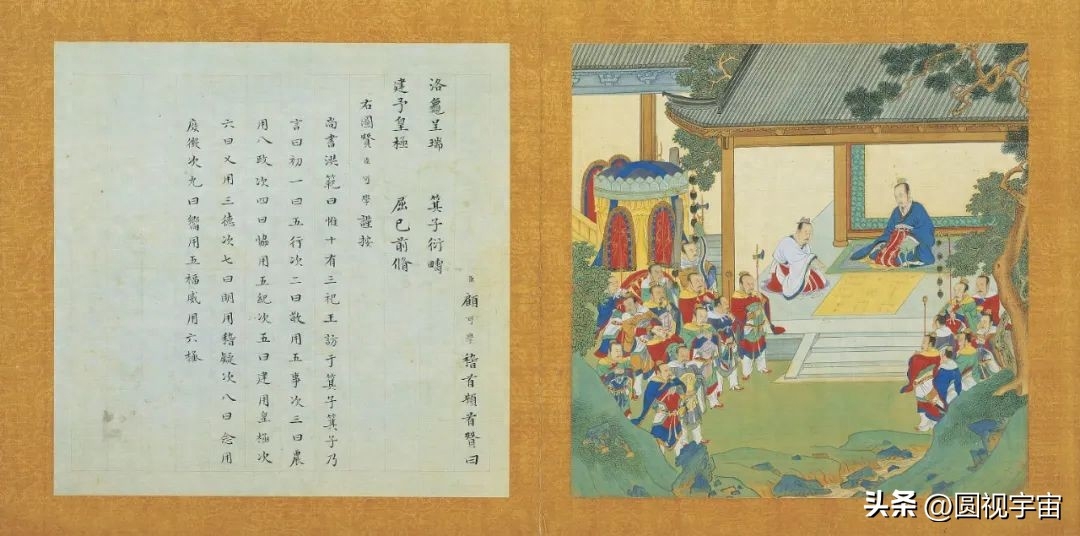 臣顧可學稽首頓首贊曰
洛龜呈瑞 箕子衍疇
建予皇極 屈已前脩
右圖贊臣可學謹按
尚書洪範曰惟十有三祀王訪于箕子箕子乃
言曰初一曰五行次二曰敬用五事次三曰農
用八政次四曰恊用五紀次五曰建用皇極次
六曰乂用三德次七曰明用稽疑次八曰念用
庶徵次九曰嚮用五福威用六極
头条 @圆视宇宙